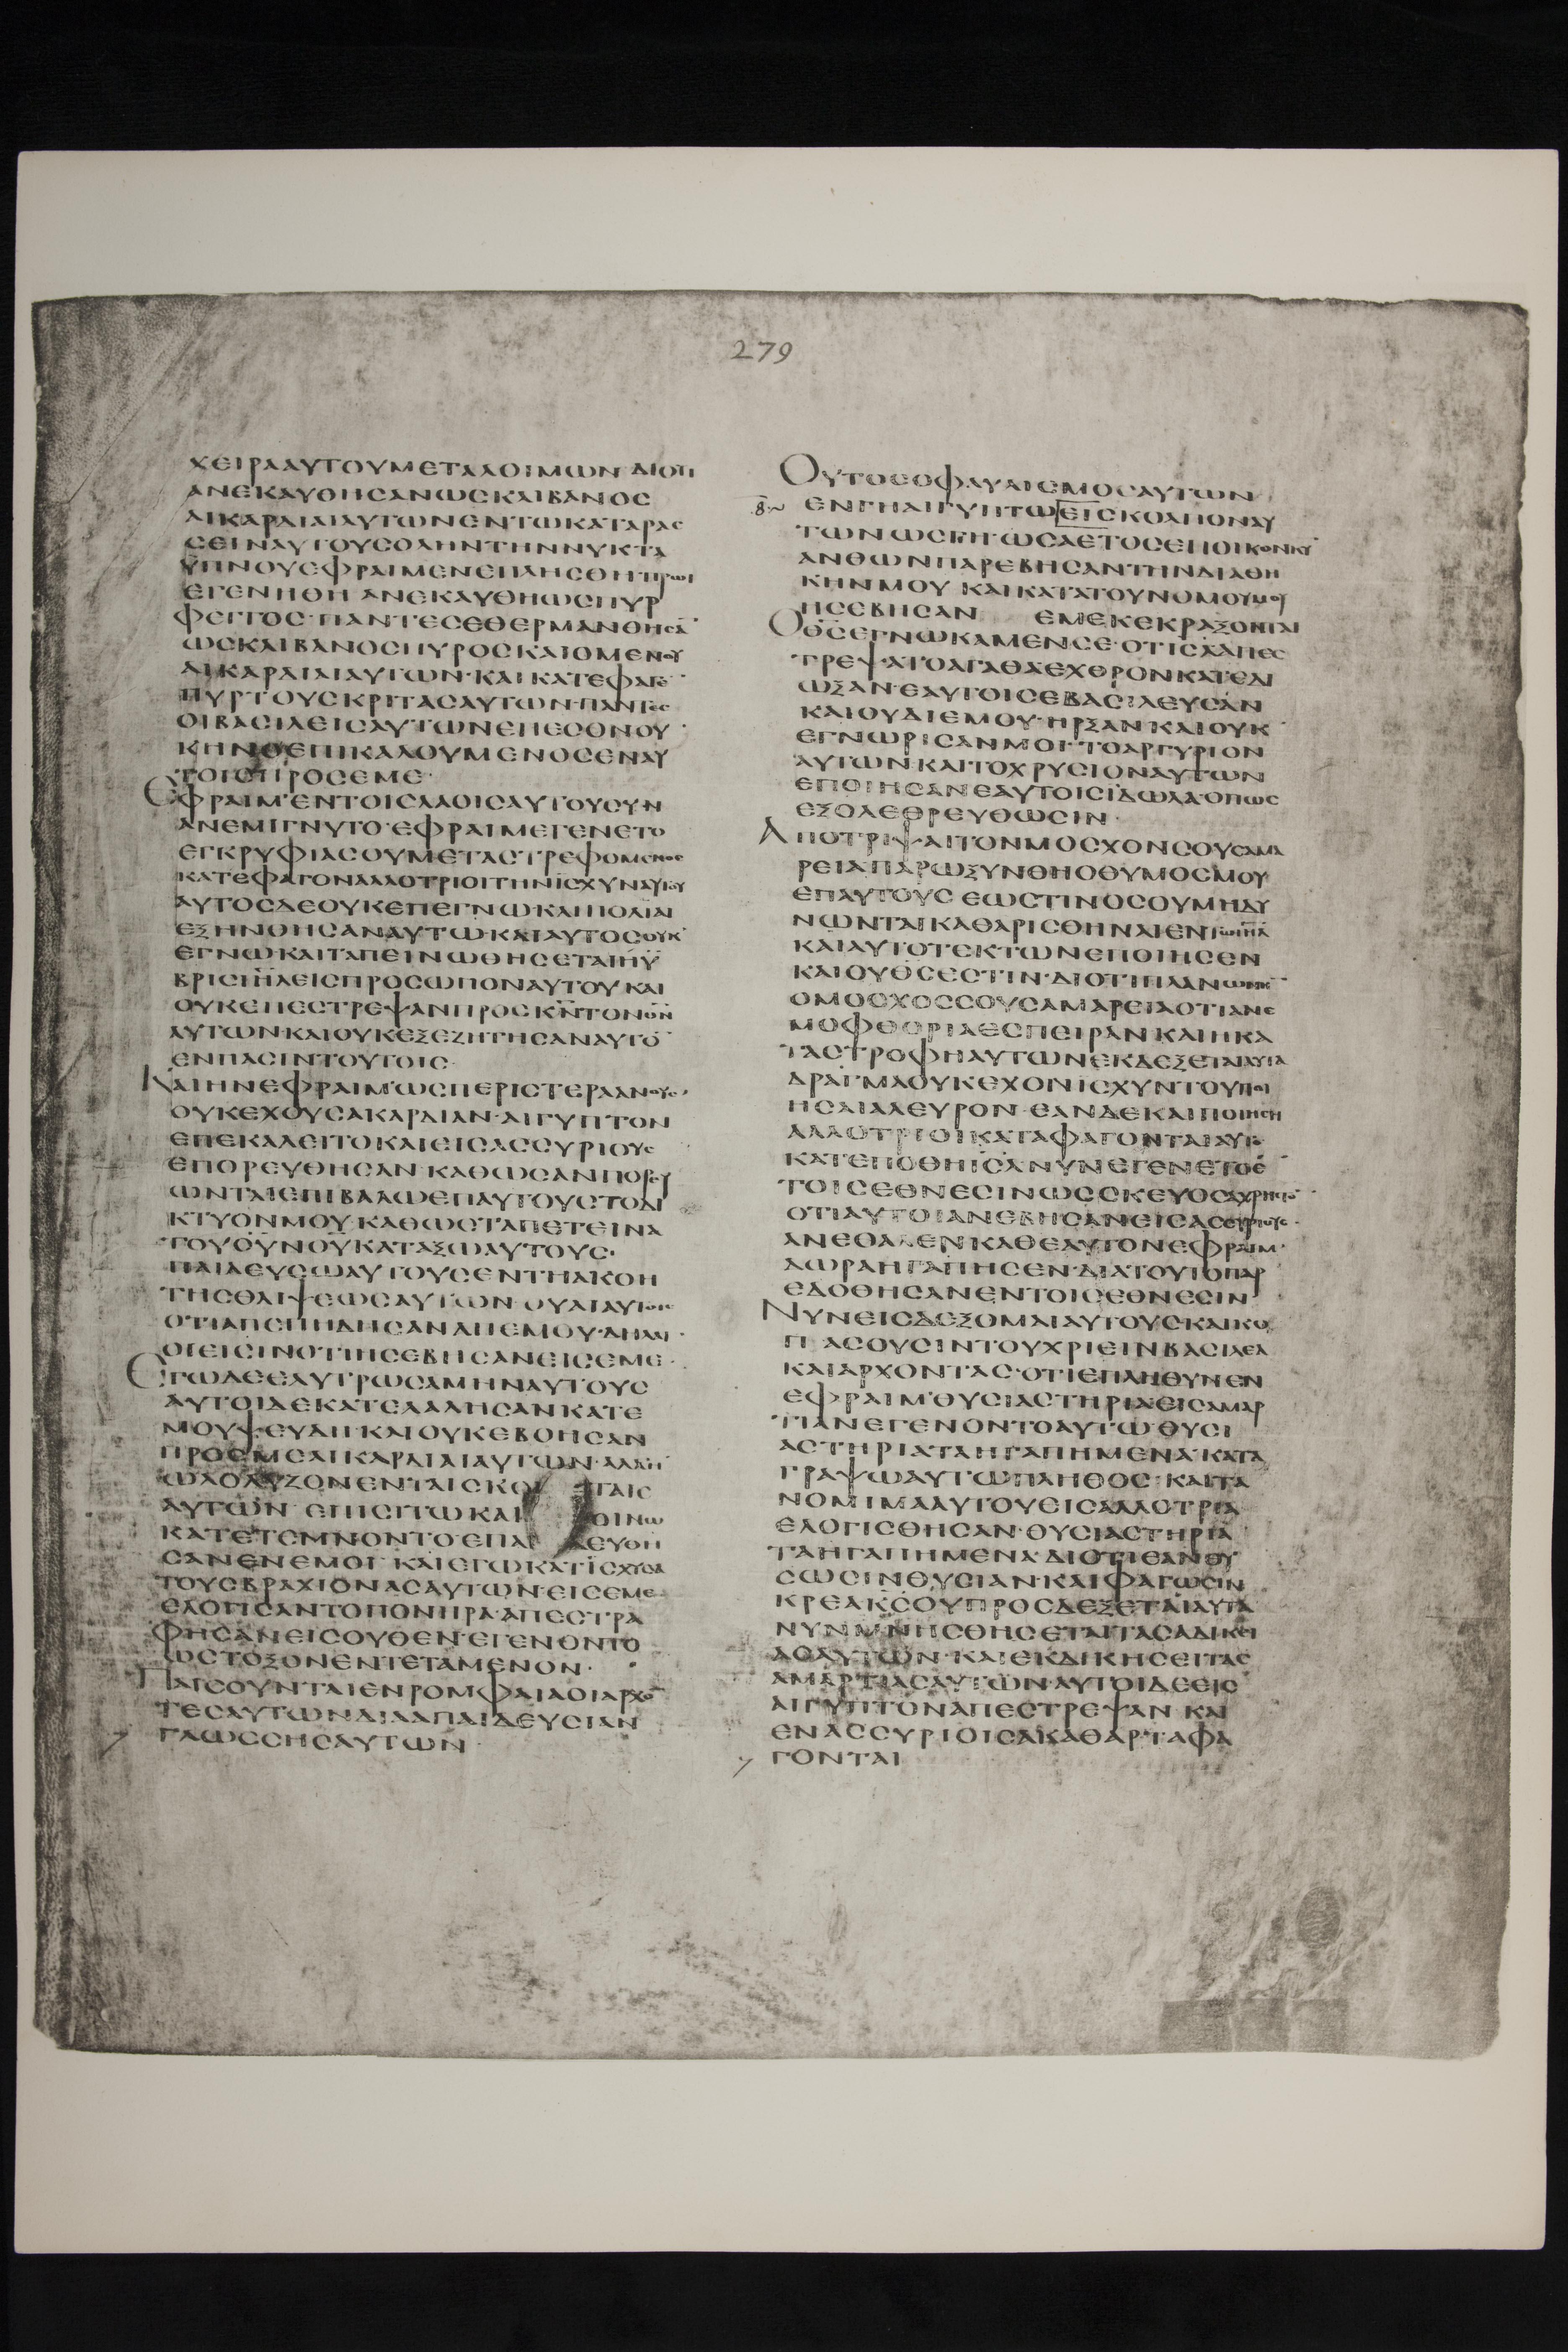 279
ΧΕΙΡΑΑΥΤΟΥΜΕΤΑΛΟΙΜΩΝ ΔΙΟΤΙ
ΑΝΕΚΑΥΘΗΣΑΝΩΣΚΛΙΒΑΝΟΣ
ΑΙΚΑΡΔΙΑΙΑΥΤΩΝΕΝΤΩΚΑΤΑΡΑΣ
ΣΕΙΝΑΥΤΟΥΣΟΛΗΝΤΗΝΝΥΚΤΑ
ΫΠΝΟΥΕΦΡΑΙΜΕΝΕΠΛΗΣΘΗ·ΠΡΩΙ
ΕΓΕΝΗΘΗ ΑΝΕΚΑΥΘΗΩΣΠΥΡ
ΦΕΓΓΟΣ·ΠΑΝΤΕΣΕΘΕΡΜΑΝΘΗΣΑ̅
ΩΣΚΛΙΒΑΝΟΣΠΥΡΟΣΚΑΙΟΜΕΝΟΥ
ΑΙΚΑΡΔΙΑΙΑΥΤΩΝ·ΚΑΙΚΑΤΕΦΑΓΕ
ΠΥΡΤΟΥΣΚΡΙΤΑΣΑΥΤΩΝ·ΠΑΝΤΕΣ
ΟΙΒΑΣΙΛΕΙΣΑΥΤΩΝΕΠΕΣΟΝΟΥ
ΚΗΝΟΕΠΙΚΑΛΟΥΜΕΝΟΣΕΝΑΥ
ΤΟΙΣΠΡΟΣΕΜΕ·
ΕΦΡΑΙΜ·ΕΝΤΟΙΣΛΑΟΙΣΑΥΤΟΥΣΥΝ
ΑΝΕΜΙΓΝΥΤΟ·ΕΦΡΑΙΜΕΓΕΝΕΤΟ
ΕΓΚΡΥΦΙΑΣΟΥΜΕΤΑΣΤΡΕΦΟΜΕΝΟΣ
ΚΑΤΕΦΑΓΟΝΑΛΛΟΤΡΙΟΙΤΗΝΙΣΧΥΝΑΥΤΟΥ
ΑΥΤΟΣΔΕΟΥΚΕΠΕΓΝΩ·ΚΑΙΠΟΛΙΑΙ
ΕΞΗΝΘΗΣΑΝΑΥΤΩ·ΚΑΙΑΥΤΟΣΟΥΚ
ΕΓΝΩ·ΚΑΙΤΑΠΕΙΝΩΘΗΣΕΤΑΙΗΫ
ΒΡΙΣΙΗ̅Λ̅ΕΙΣΠΡΟΣΩΠΟΝΑΥΤΟΥ·ΚΑΙ
ΟΥΚΕΠΕΣΤΡΕΨΑΝΠΡΟΣΚ̅Ν̅ΤΟΝΘ̅Ν̅
ΑΥΤΩΝ·ΚΑΙΟΥΚΕΞΕΖΗΤΗΣΑΝΑΥΤΟ̅
ΕΝΠΑΣΙΝΤΟΥΤΟΙΣ·
ΚΑΙΗΝΕΦΡΑΙΜ·ΩΣΠΕΡΙΣΤΕΡΑΑΝΟΥΣ·
ΟΥΚΕΧΟΥΣΑΚΑΡΔΙΑΝ·ΑΙΓΥΠΤΟΝ
ΕΠΕΚΑΛΕΙΤΟΚΑΙΕΙΣΑΣΣΥΡΙΟΥΣ
ΕΠΟΡΕΥΘΗΣΑΝ·ΚΑΘΩΣΑΝΠΟΡΕΥ
ΩΝΤΑΙΕΠΙΒΑΛΩΕΠΑΥΤΟΥΣΤΟΔΙ
ΚΤΥΟΝΜΟΥ·ΚΑΘΩΣΤΑΠΕΤΕΙΝΑ
ΤΟΥΟΥ̅Ν̅ΟΥ̅ΚΑΤΑΞΩΑΥΤΟΥΣ·
ΠΑΙΔΕΥΣΩΑΥΤΟΥΣΕΝΤΗΑΚΟΗ
ΤΗΣΘΛΙΨΕΩΣΑΥΤΩΝ· ΟΥΑΙΑΥΤΟΙΣ
ΟΤΙΑΠΕΠΗΔΗΣΑΝΑΠΕΜΟΥ·ΔΗΛΑΙ·
ΟΙΕΙΣΙΝΟΤΙΗΣΕΒΗΣΑΝΕΙΣΕΜΕ·
ΕΓΩΔΕΕΛΥΤΡΩΣΑΜΗΝΑΥΤΟΥΣ
ΑΥΤΟΙΔΕΚΑΤΕΛΑΛΗΣΑΝΚΑΤΕ
ΜΟΥΨΕΥΔΗ·ΚΑΙΟΥΚΕΒΟΗΣΑΝ
ΠΡΟΣΜΕΑΙΚΑΡΔΙΑΙΑΥΤΩΝ·ΑΛΛΗ
ΩΛΟΛΥΖΟΝΕΝΤΑΙΣΚΟΙ ΤΑΙΣ
ΑΥΤΩΝ· ΕΠΙΣΙΤΩΚΑΙ ΟΙΝΩ
ΚΑΤΕΤΕΜΝΟΝΤΟΕΠΑΙ ΔΕΥΘΗ
ΣΑΝΕΝΕΜΟΙ· ΚΑΙΕΓΩΚΑΤΙΣΧΥΣΑ
ΤΟΥΣΒΡΑΧΙΟΝΑΣΑΥΤΩΝ·ΕΙΣΕΜΕ
ΕΛΟΓΙΣΑΝΤΟΠΟΝΗΡΑ·ΑΠΕΣΤΡΑ
ΦΗΣΑΝΕΙΣΟΥΘΕΝ·ΕΓΕΝΟΝΤΟ
ΩΣΤΟΞΟΝΕΝΤΕΤΑΜΕΝΟΝ·
ΠΑΙΣΟΥΝΤΑΙΕΝΡΟΜΦΑΙΑΟΙΑΡΧΟ̅
ΤΕΣΑΥΤΩΝΔΙΑΑΠΑΙΔΕΥΣΙΑΝ
ΓΛΩΣΣΗΣΑΥΤΩΝ·
ΟΥΤΟΣΟΦΑΥΛΙΣΜΟΣΑΥΤΩΝ
ΕΝΓΗΑΙΓΥΠΤΩΕΙΣΚΟΛΠΟΝΑΥ
ΤΩΝΩΣΓΗ·ΩΣΑΕΤΟΣΕΠΟΙΚΟΝΚ̅Υ̅
ΑΝΘΩΝΠΑΡΕΒΗΣΑΝΤΗΝΔΙΑΘΗ
ΚΗΝΜΟΥ ΚΑΙΚΑΤΑΤΟΥΝΟΜΟΥΜΟΥ
ΗΣΕΒΗΣΑΝ ΕΜΕΚΕΚΡΑΞΟΝΤΑΙ
Ο̅Θ̅ΣΕΓΝΩΚΑΜΕΝΣΕ·ΟΤΙΣΛΑΠΕΣ
ΤΡΕΨΑΤΟΑΓΑΘΑΕΧΘΡΟΝΚΑΤΕΔΙ
ΩΞΑΝ·ΕΑΥΤΟΙΣΕΒΑΣΙΛΕΥΣΑΝ
ΚΑΙΟΥΔΙΕΜΟΥ·ΗΡΞΑΝΚΑΙΟΥΚ
ΕΓΝΩΡΙΣΑΝΜΟΙ·ΤΟΑΡΓΥΡΙΟΝ
ΑΥΤΩΝΚΑΙΤΟΧΡΥΣΙΟΝΑΥΤΩΝ
ΕΠΟΙΗΣΑΝΕΑΥΤΟΙΣΙΔΩΛΑ·ΟΠΩΣ
ΕΞΟΛΕΘΡΕΥΘΩΣΙΝ·
ΑΠΟΤΡΙΨΑΙΤΟΝΜΟΣΧΟΝΣΟΥΣΑΜΑ
ΡΕΙΑΠΑΡΩΞΥΝΘΗΟΘΥΜΟΣΜΟΥ
ΕΠΑΥΤΟΥΣ ΕΩΣΤΙΝΟΣΟΥΜΗΔΥ
ΝΩΝΤΑΙΚΑΘΑΡΙΣΘΗΝΑΙΕΝΤΩΙΗ̅Λ̅
ΚΑΙΑΥΤΟΤΕΚΤΩΝΕΠΟΙΗΣΕΝ
ΚΑΙΟΥΘ̅Σ̅ΕΣΤΙΝ·ΔΙΟΤΙΠΛΑΝΩΝΗΝ
ΟΜΟΣΧΟΣΣΟΥΣΑΜΑΡΕΙΑΟΤΙΑΝΕ
ΜΟΦΘΟΡΙΑΕΣΠΕΙΡΑΝ·ΚΑΙΗΚΑ
ΤΑΣΤΡΟΦΗΑΥΤΩΝΕΚΔΕΞΕΤΑΙΑΥΤΑ
ΔΡΑΓΜΑΟΥΚΕΧΟΝΙΣΧΥΝΤΟΥΠΟΙ
ΗΣΑΙΑΛΕΥΡΟΝ·ΕΑΝΔΕΚΑΙΠΟΙΗΣΗ
ΑΛΛΟΤΡΙΟΙΚΑΤΑΦΑΓΟΝΤΑΙΑΥΤΟ
ΚΑΤΕΠΟΘΗΙΣΛΝΥΝΕΓΕΝΕΤΟΕ̅
ΤΟΙΣΕΘΝΕΣΙΝΩΣΣΚΕΥΟΣΑΧΡΗΣΤΟ̅·
ΟΤΙΑΥΤΟΙΑΝΕΒΗΣΑΝΕΙΣΑΣΣΥΡΙΟΥΣ·
ΑΝΕΘΑΛΕΝΚΑΘΕΑΥΤΟΝΕΦΡΑΙΜ·
ΔΩΡΑΗΓΑΠΗΣΕΝ·ΔΙΑΤΟΥΤΟΠΑΡ
ΕΔΟΘΗΣΑΝΕΝΤΟΙΣΕΘΝΕΣΙΝ·
ΝΥΝΕΙΣΔΕΞΟΜΑΙΑΥΤΟΥΣ·ΚΑΙΚΟ
Π ΑΣΟΥΣΙΝΤΟΥΧΡΙΕΙΝΒΑΣΙΛΕΑ
ΚΑΙΑΡΧΟΝΤΑΣ·ΟΤΙΕΠΛΗΘΥΝΕΝ
ΕΦΡΑΙΜ·ΘΥΣΙΑΣΤΗΡΙΑΕΙΣΑΜΑΡ
ΤΙΑΝΕΓΕΝΟΝΤΟΑΥΤΩΘΥΣΙ
ΑΣΤΗΡΙΑΤΑΗΓΑΠΗΜΕΝΑ·ΚΑΤΑ
ΓΡΑΨΩΑΥΤΩΠΛΗΘΟΣ·ΚΑΙΤΑ
ΝΟΜΙΜΑΑΥΤΟΥΕΙΣΑΛΛΟΤΡΙΑ
ΕΛΟΓΙΣΘΗΣΑΝ·ΘΥΣΙΑΣΤΗΡΙΑ
ΤΑΗΓΑΠΗΜΕΝΑ·ΔΙΟΤΙΕΑΝΘΥ
ΣΩΣΙΝΘΥΣΙΑΝ·ΚΑΙΦΑΓΩΣΙΝ
ΚΡΕΑΚ̅Σ̅ΟΥΠΡΟΣΔΕΞΕΤΑΙΑΥΤΑ
ΝΥΝΜΝΗΣΘΗΣΕΤΑΙΤΑΣΑΔΙΚΙ
ΑΣΑΥΤΩΝ·ΚΑΙΕΚΔΙΚΗΣΕΙΤΑΣ
ΑΜΑΡΤΙΑΣΑΥΤΩΝ·ΑΥΤΟΙΔΕΕΙΣ
ΑΙΓΥΠΤΟΝΑΠΕΣΤΡΕΨΑΝ ΚΑΙ
ΕΝΑΣΣΥΡΙΟΙΣΑΚΑΘΑΡΤΑΦΑ
ΓΟΝΤΑΙ